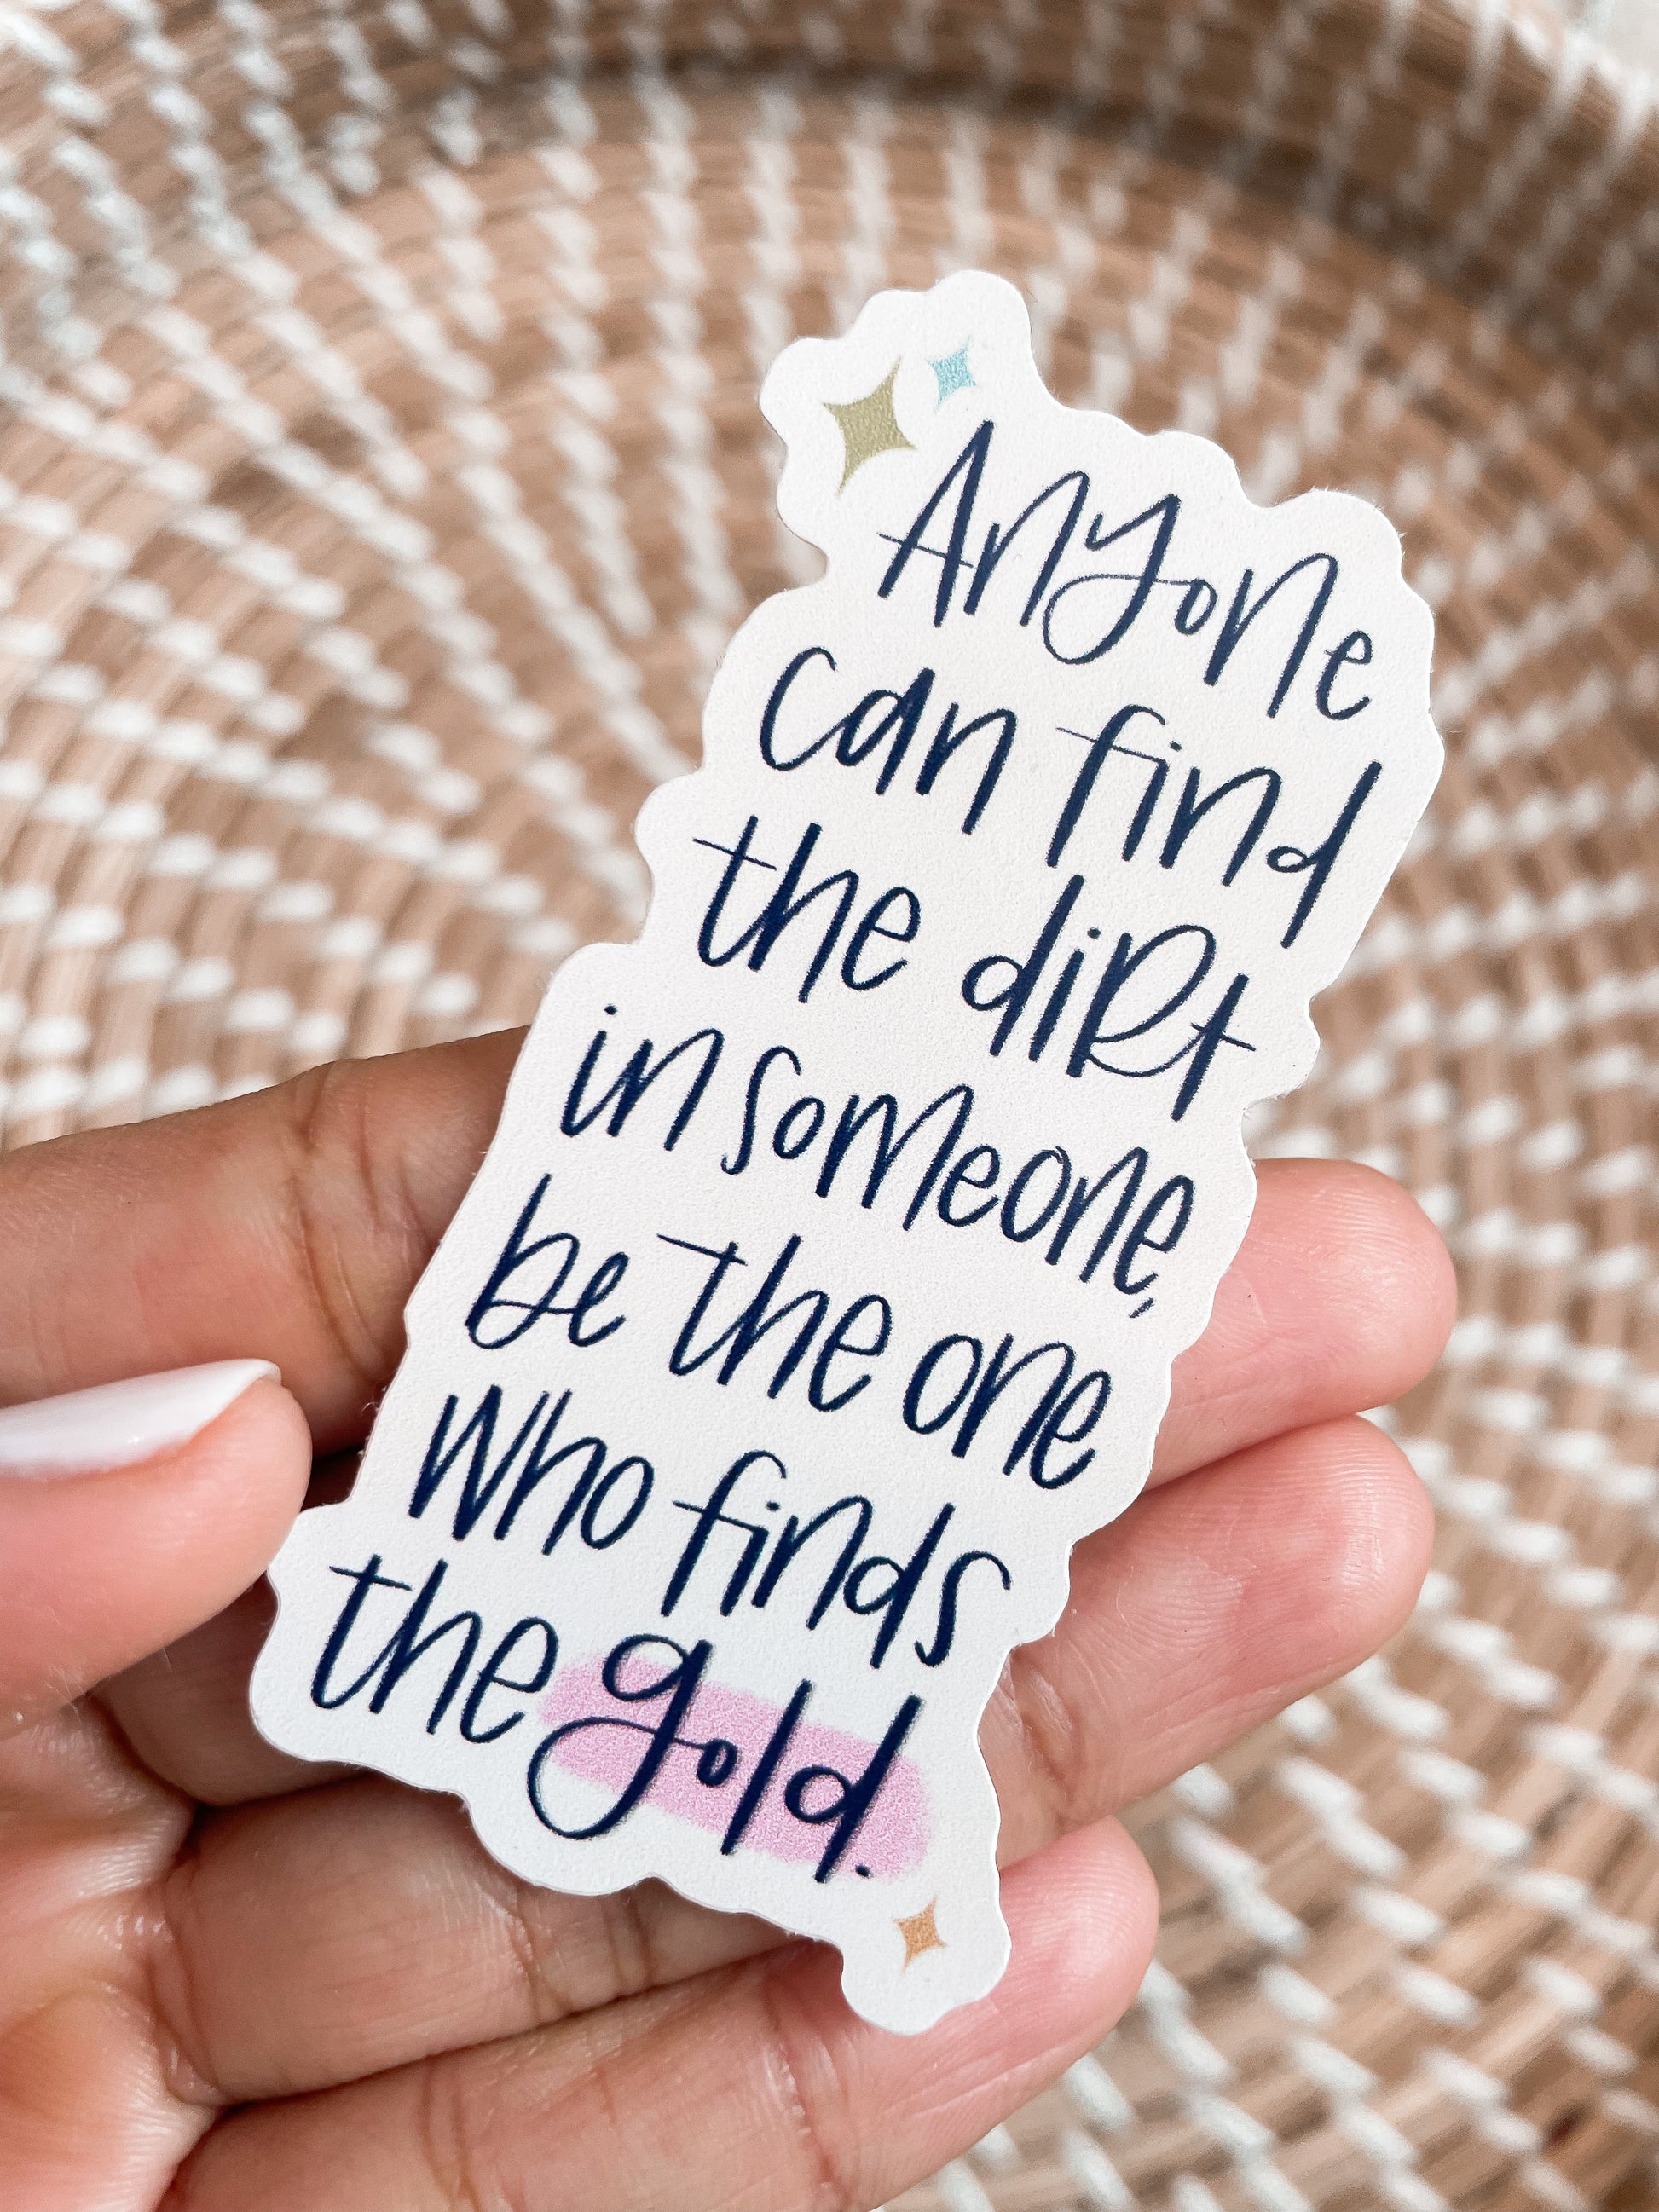 Anyone
can find
the dirt
in someone,
be the one
who finds
the gold.